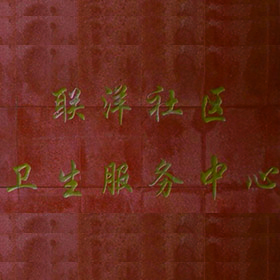 联洋社区
卫生服务中心